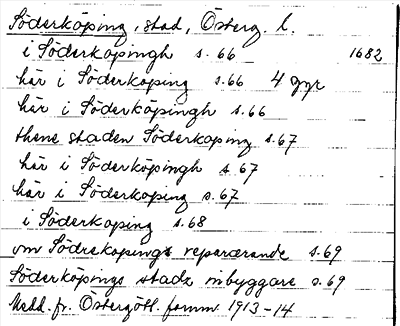 Söderköping, stad, Österg. l.
i Söderkopingh s. 66 1682
här i Söderköping s. 66 4 ggr
här i Söderköpingh s. 66
thene staden Söderkoping s. 67
här i Söderköpingh s. 67
här i Söderkoping s. 67
i Söderkoping s. 68
om Södrekopings reparærande s. 69
Söderköpings stadz inbyggare s. 69
Medd. fr. Östergötl. fornm. 1913-14